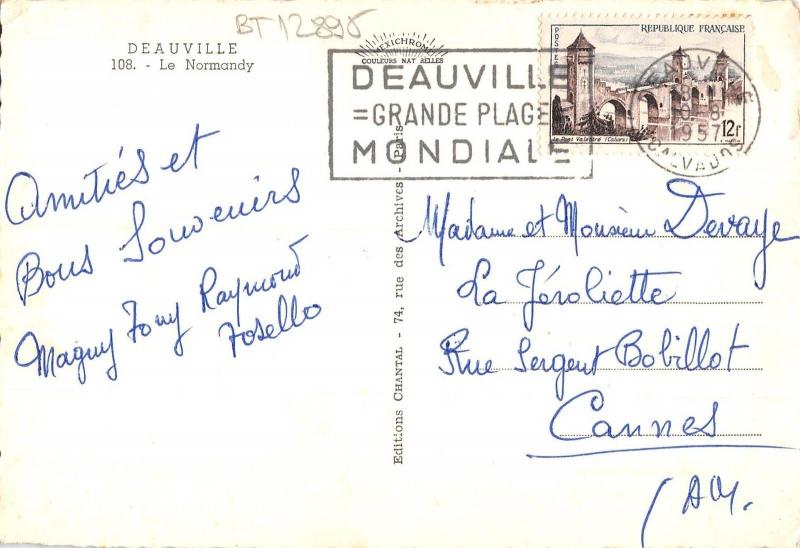 BT 12895
DEAUVILLE
108. - Le Normandy
MEXICHROME
COULEURS NATURELLES
DEAUVILLE
=GRANDE PLAGE
MONDIALE
POSTES
REPUBLIQUE FRANÇAISE
Le Pont Valentré (Cahors)
12f
DEAUVILLE
1957
CALVADOS
Amitiés et
Bons Souvenirs
Maguy Tony Raymond
Tosello
Editions CHANTAL - 74, rue des Archives - Paris
Madame et Monsieur Devaye
La Féroliette
Rue Sergent Bobillot
Cannes
(AM.